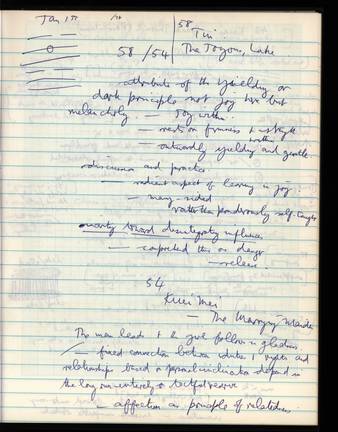 Jan 1st
58
Tui
58/54 The Joyous, Lake
attribute of the yielding or
dark principle not joy here but
melancholy — Joy within
— rests on firmness & strength
within
— outwardly yielding and gentle
discussion and practice
— radiant aspect of learning in joy
— many-sided
rather than ponderously self-taught
toward disintegrating influences
— expected this as danger
— release
54
Kuei Mei
— The Marrying Maiden
The man leads & the girl follows in gladness
— fixed connection between duties & rights and
relationship based on personal inclination depend in
the long run entirely on tactful reserve
— affection as principle of relatedness